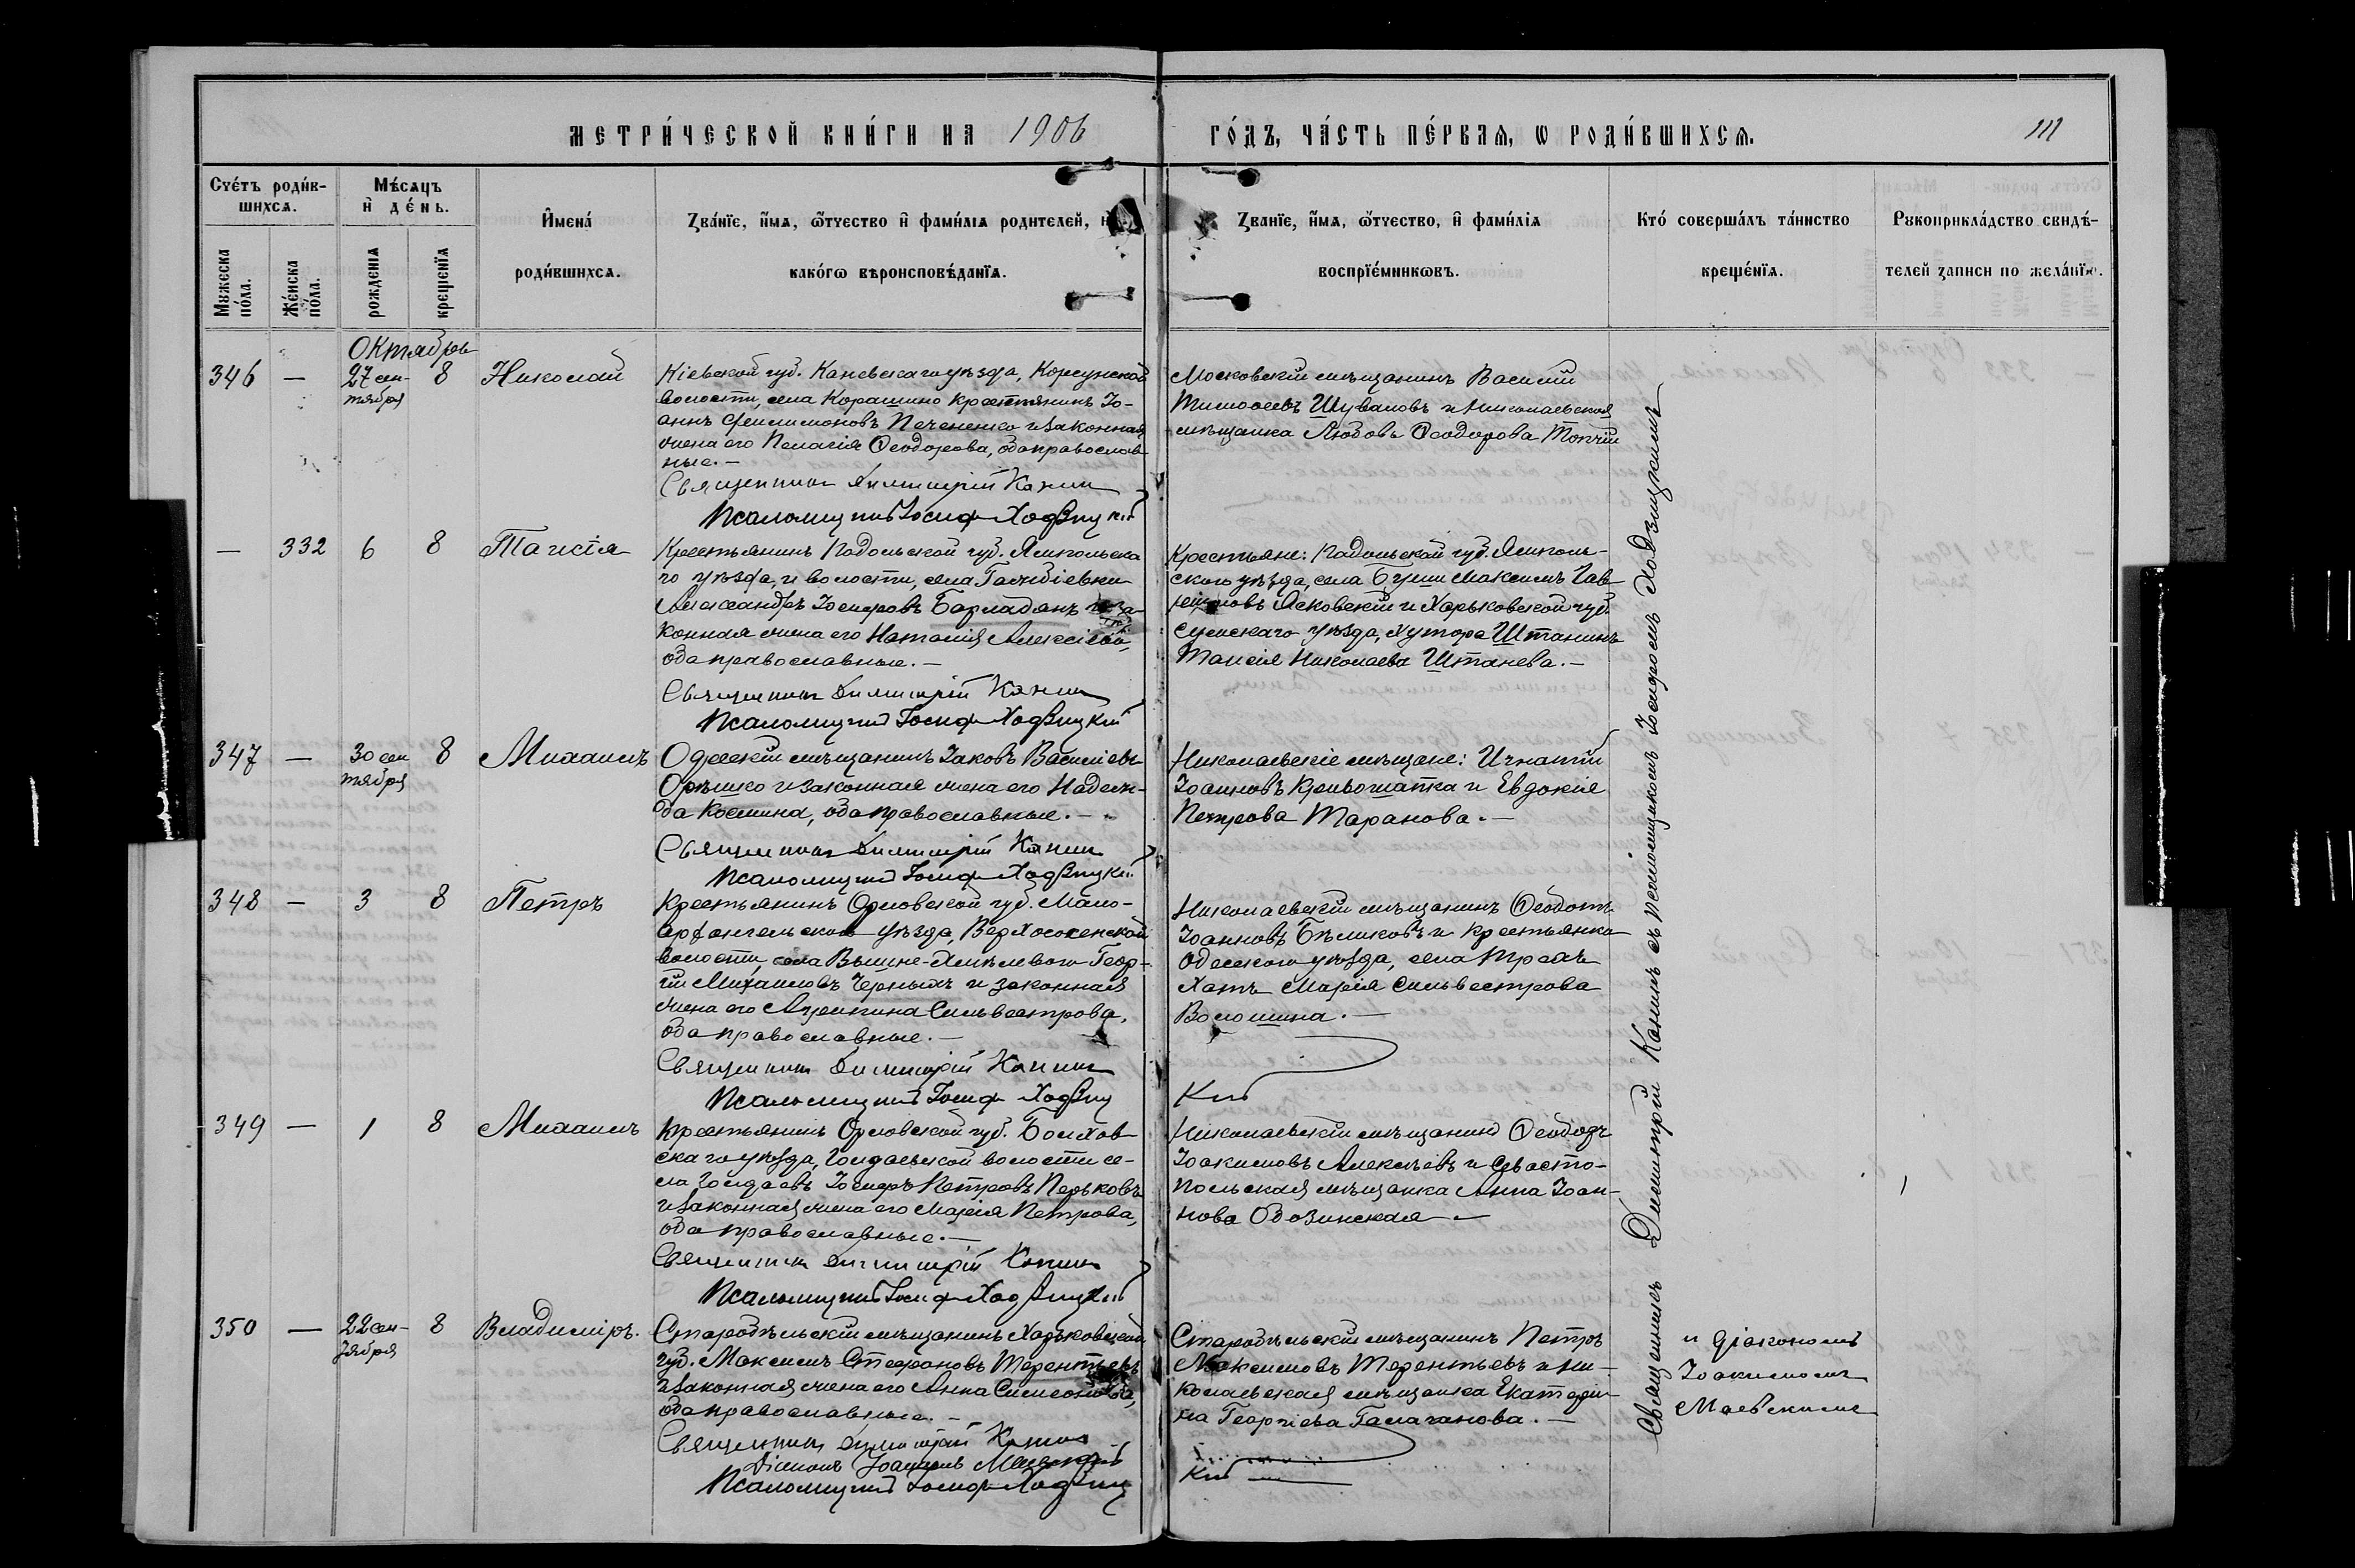 МЕТРИ́ЧЕСКОЙ КНИ́ГИ НА 1906 ГО́ДЪ, ЧА́СТЬ ПЕ́РВАЯ, Ѡ РОДИ́ВШИХСѦ.
111
Счéтъ роди́вшихсѧ.
Мѣ́сѧцъ и҆ де́нь.
И҆мена́ роди́вшихсѧ.
Зва́нїе, и҆́мѧ, ѻ҆́тчество и҆ фами́лїѧ родителей, и҆
како́гѡ вѣроисповѣ́данїѧ.
Зва́нїе, и҆́мѧ, ѻ҆́тчество, и҆ фами́лїѧ
воспрїе́мникѡвъ.
Кто́ соверша́лъ та́инство
креще́нїѧ.
Рꙋкоприкла́дство свидѣ́-
телей записи по жела́нїю.
Мꙋжеска по́ла.
Же́нска по́ла.
рожденїѧ
крещенїѧ
Октябрь
346 — 27 сен-
тября
8 Николай
Кіевской губ. Каневскаго уѣзда, Корсунской
волости, села Корашино крестьянинъ Іо-
аннъ Филимоновъ Печененко и законная
жена его Пелагія Ѳеодорова, оба православ-
ные. —
Священникъ Димитрій Канин
Псаломщикъ Іосиф Ходзицкій
Московскій мѣщанинъ Василій
Тимоѳеевъ Шуваловъ и Николаевская
мѣщанка Любовь Ѳеодорова Топчій
— 332 6 8 Таисія
Крестьянинъ Подольской губ. Ямпольска
го уѣзда, и волости, села
Александръ Іосифовъ Барладянъ и за-
конная жена его Наталія Алексіева,
оба православные. —
Священникъ Димитрій Канин
Псаломщикъ Іосиф Ходзицкій
Крестьяне: Подольской губ. Ямполь-
скаго уѣзда, села Буши Максимъ Гав-
риловъ Ясковскій и Харьковской губ.
Сумскаго уѣзда, хутора Штанинъ
Таисія Николаева Штанева. —
347 — 30 сен
тября
8 Михаилъ
Одесскій мѣщанинъ Іаковъ Василіевъ
Орѣшко и законная жена его Надеж-
да Космина, оба православные. —
Священникъ Димитрій Канин
Псаломщикъ Іосиф Ходзицкій
Николаевскіе мѣщане: Игнатій
Іоанновъ Кривошапка и Евдокія
Петрова Таранова. —
348 — 3 8 Петръ
Крестьянинъ Орловской губ. Мало-
архангельскаго уѣзда, Верхососенской
волости, села Вышне-Ольховаго Геор-
гій Михаиловъ Черныхъ и законная
жена его Агрипина Сильвестрова,
оба православные. —
Священникъ Димитрій Канин
Псаломщикъ Іосиф Ходзиц
Николаевскій мѣщанинъ Ѳеодотъ
Іоанновъ Бѣликовъ и крестьянка
Одесскаго уѣзда, села Трехъ
Хатъ Марія Сильвестрова
Волошина. —
Кій
349 — 1 8 Михаилъ
Крестьянинъ Орловской губ. Болхов-
скаго уѣзда, волости се-
ла Іосифъ Петровъ Перьковъ
и законная жена его Марія Петрова,
оба православные. —
Священникъ Димитрій Канин
Псаломщикъ Іосиф Ходзицкій
Николаевскій мѣщанинъ Ѳеодоръ
Іоакимовъ Алексѣевъ и Севасто-
польская мѣщанка Анна Іоан-
нова Обозинская —
350 — 22 сен-
тября
8 Владиміръ.
Старобѣльскій мѣщанинъ Харьковской
губ. Максимъ Стефановъ Терентьевъ
и законная жена его Анна Симеонова,
оба православные. —
Священникъ Димитрій Канин
Діаконъ Іоакимъ Маевскій
Псаломщикъ Іосиф Ходзиц
Старобѣльскій мѣщанинъ Петръ
Максимовъ Терентьевъ и Ни-
колаевская мѣщанка Екатери-
на Георгіева Галаганова. —
Кій
Священникъ Димитрій Канинъ съ псаломщикомъ Іосифомъ Ходзицкимъ
и діакономъ
Іоакимомъ
Маевскимъ